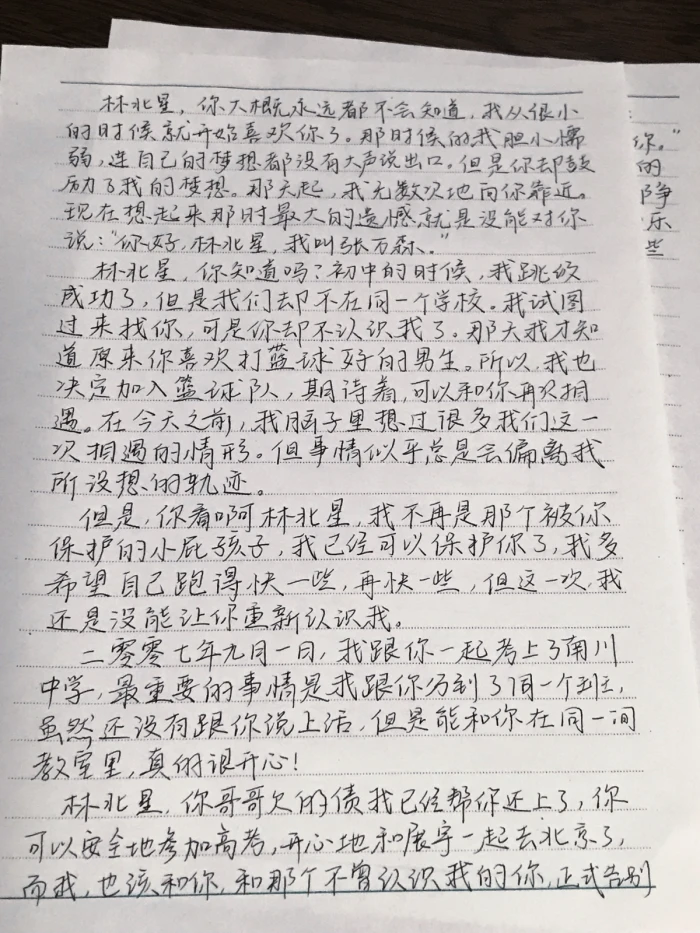 林北星，你大概永远都不会知道，我从很小
的时候就开始喜欢你了。那时候的我胆小懦
弱，连自己的梦想都没有大声说出口。但是你却鼓
励了我的梦想。那天起，我无数次地向你靠近。
现在想起来那时最大的遗憾就是没能对你
说：“你好，林北星，我叫张万森。”
林北星，你知道吗？初中的时候，我跳级
成功了，但是我们却不在同一个学校。我试图
过来找你，可是你却不认识我了。那天我才知
道原来你喜欢打蓝球好的男生。所以，我也
决定加入篮球队，期待着，可以和你再次相
遇。在今天之前，我脑子里想过很多我们这一
次相遇的情形。但事情似乎总是会偏离我
所设想的轨迹。
但是，你看啊林北星，我不再是那个被你
保护的小屁孩子，我已经可以保护你了，我多
希望自己跑得快一些，再快一些，但这一次，我
还是没能让你重新认识我。
二零零七年九月一日，我跟你一起考上了南川
中学，最重要的事情是我跟你分到了同一个班，
虽然还没有跟你说上话，但是能和你在同一间
教室里，真的很开心！
林北星，你哥哥欠的债我已经帮你还上了，你
可以安全地参加高考，开心地和展宇一起去北京了，
而我，也该和你，和那个不曾认识我的你，正式告别
你。”
的
乐
些